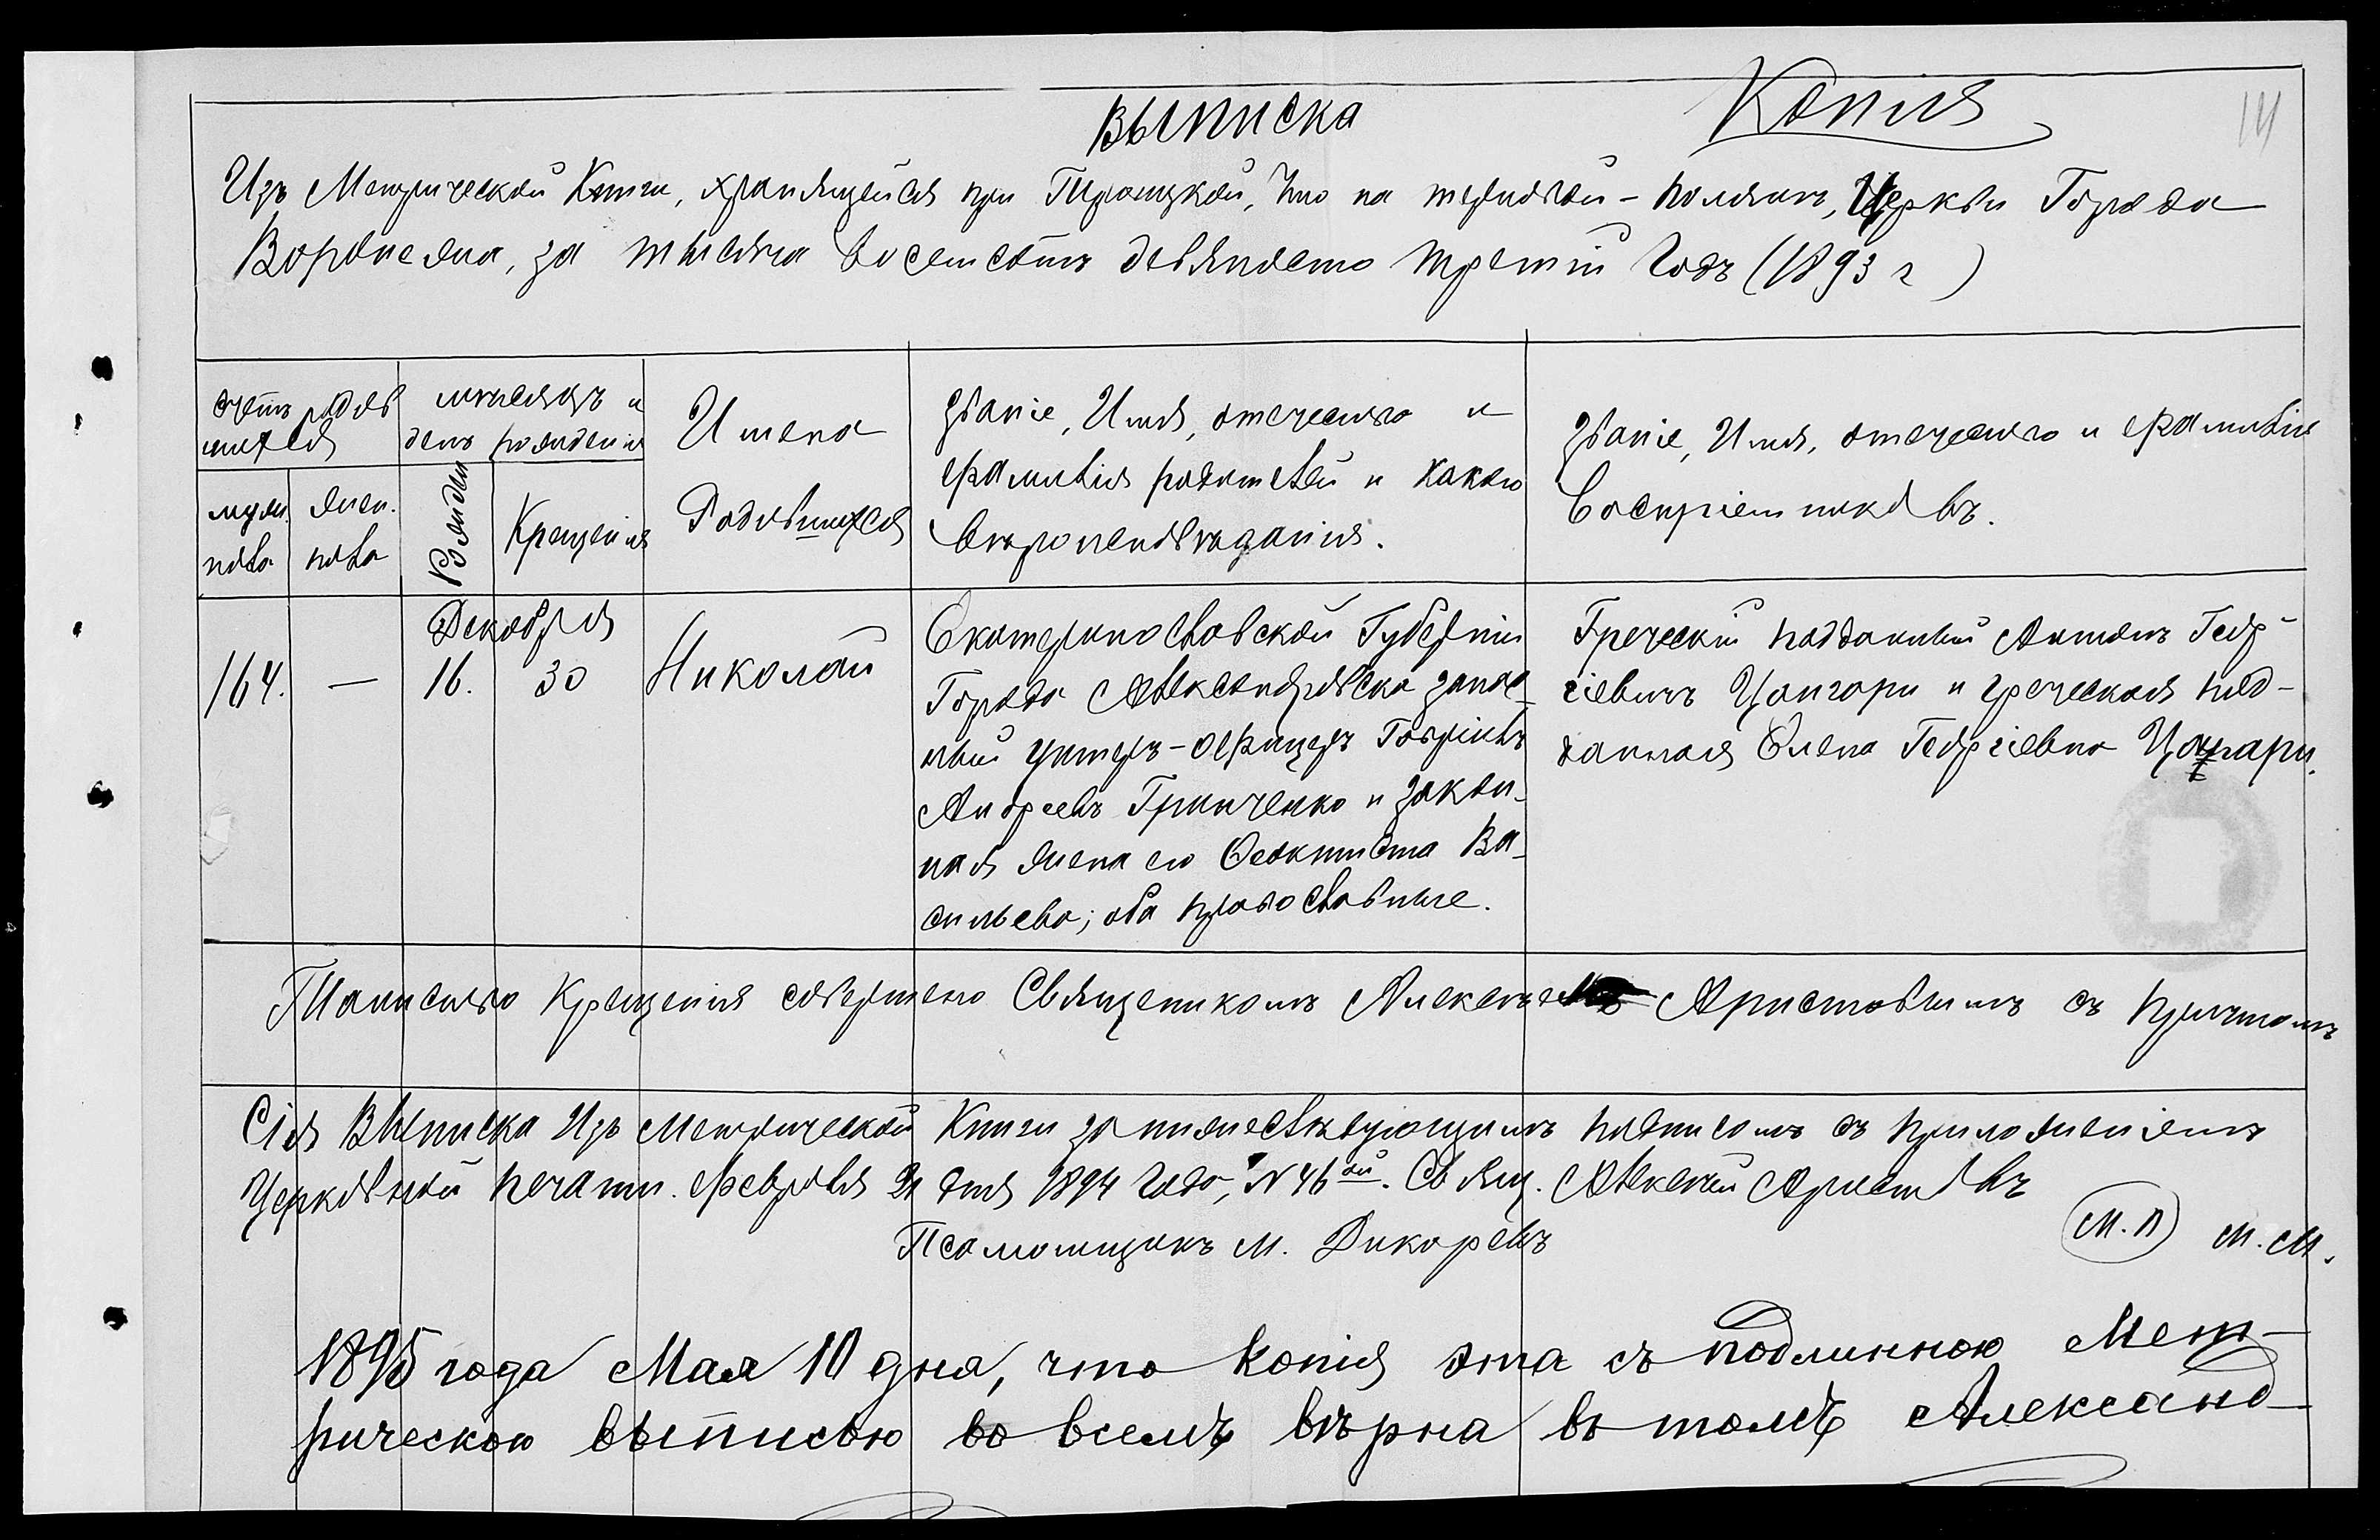 Копія
Выписка
Изъ Метрической Книги, хранящейся при Троицкой, что на терновой-поляне, Церкви Города
Воронежа, за тысяча восемсотъ девяносто третій Годъ (1893 г)
счетъ родив
шихся
мужес.
пола
женс.
пола
месяцъ и
день рожденія
Рожден
Крещенія
Имена
Родившихся
Званіе, Имя, отечество и
фамилія родителей и какого
вѣроисповѣданія.
Званіе, Имя, отечество и фамилія
Воспріемниковъ.
164.
—
Декабря
16.
30
Николай
Екатеринославской Губерніи
Города Александровска запас
ный унтеръ-офицеръ Гавріилъ
Андреевъ Гринченко и закон-
ная жена его Феоктиста Ва-
сильева; оба православные.
Греческій подданный Антонъ Геор-
гіевичъ Цангари и греческая под-
данная Елена Георгіевна Цангари.
Таинство Крещенія совершено Священикомъ Алексѣемъ Аристовымъ съ причтомъ
Сія Выписка Изъ Метрической Книги за нижеслѣдующимъ подписомъ съ приложеніемъ
Церковной печати. Февраля 21 дня 1894 Года, № 46ой. Свящ. Алексѣй Аристовъ
Псаломщикъ М. Дикаревъ
М.П М.М.
1895 года Мая 10 дня, что копія эта съ подлинною Мет-
рическою выписью во всемъ вѣрна въ томъ Александ-